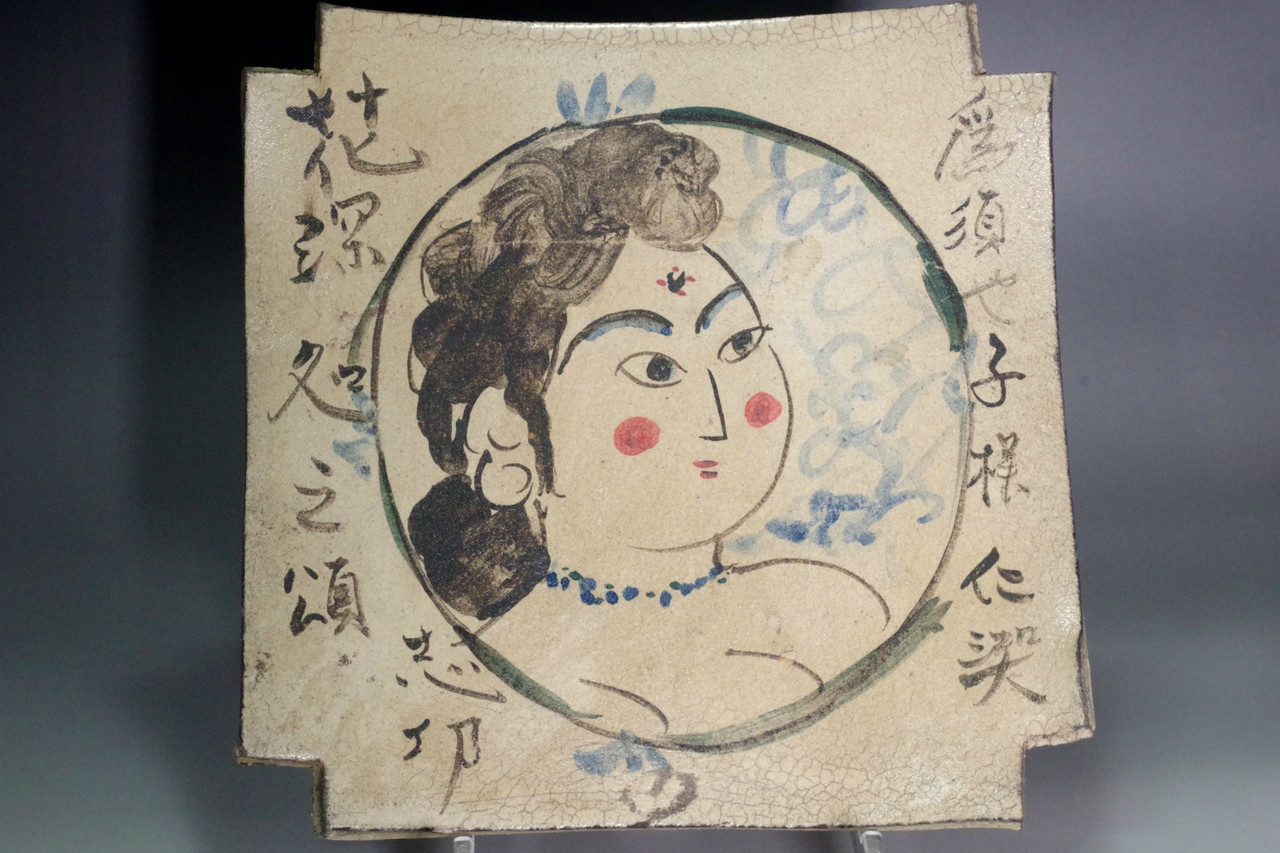 為須也子様 仁
花深処之頌
志功